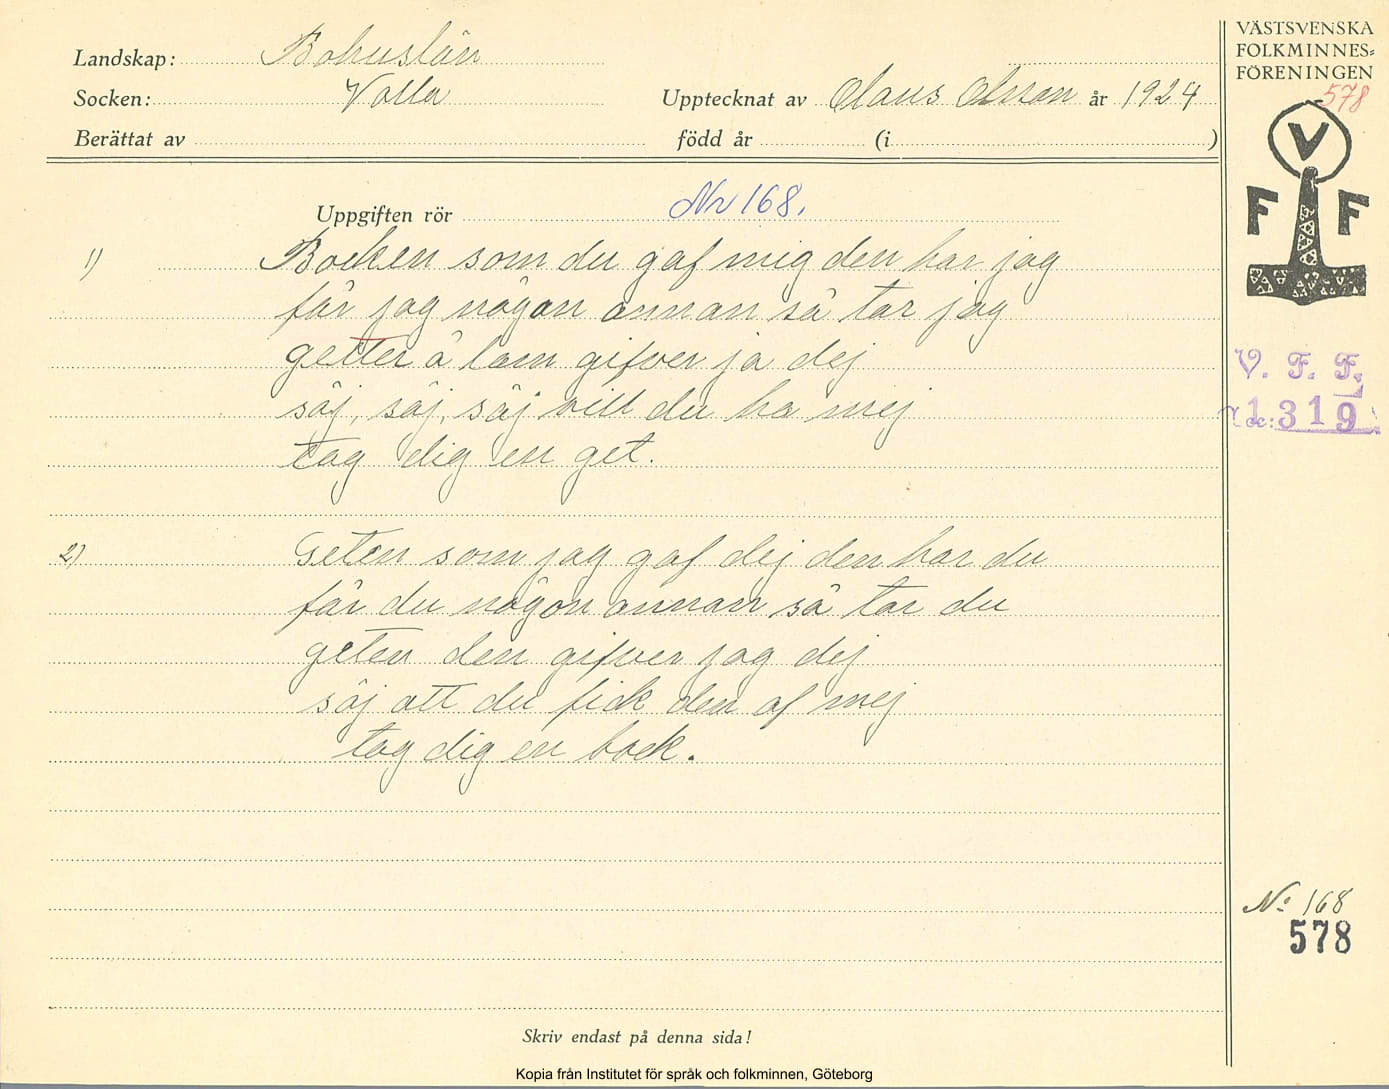 Landskap: Bohuslän
Socken: Valla
Upptecknat av Olaus Olsson år 1924
Berättat av
född år (i )
VÄSTSVENSKA
FOLKMINNES-
FÖRENINGEN
578
V
F F
Uppgiften rör Nr 168.
1) Bocken som du gaf mig den har jag
får jag någon annan så tar jag
getter å lam gifver ja dej
säj, säj, säj vill du ha mej
tag dig en get.
2) Geten som jag gaf dej den har du
får du någon annan så tar du
geten den gifver jag dej
säj att du fick den af mej
tag dig en bock.
V. F. F.
Acc: 1319
No 168
578
Skriv endast på denna sida!
Kopia från Institutet för språk och folkminnen, Göteborg